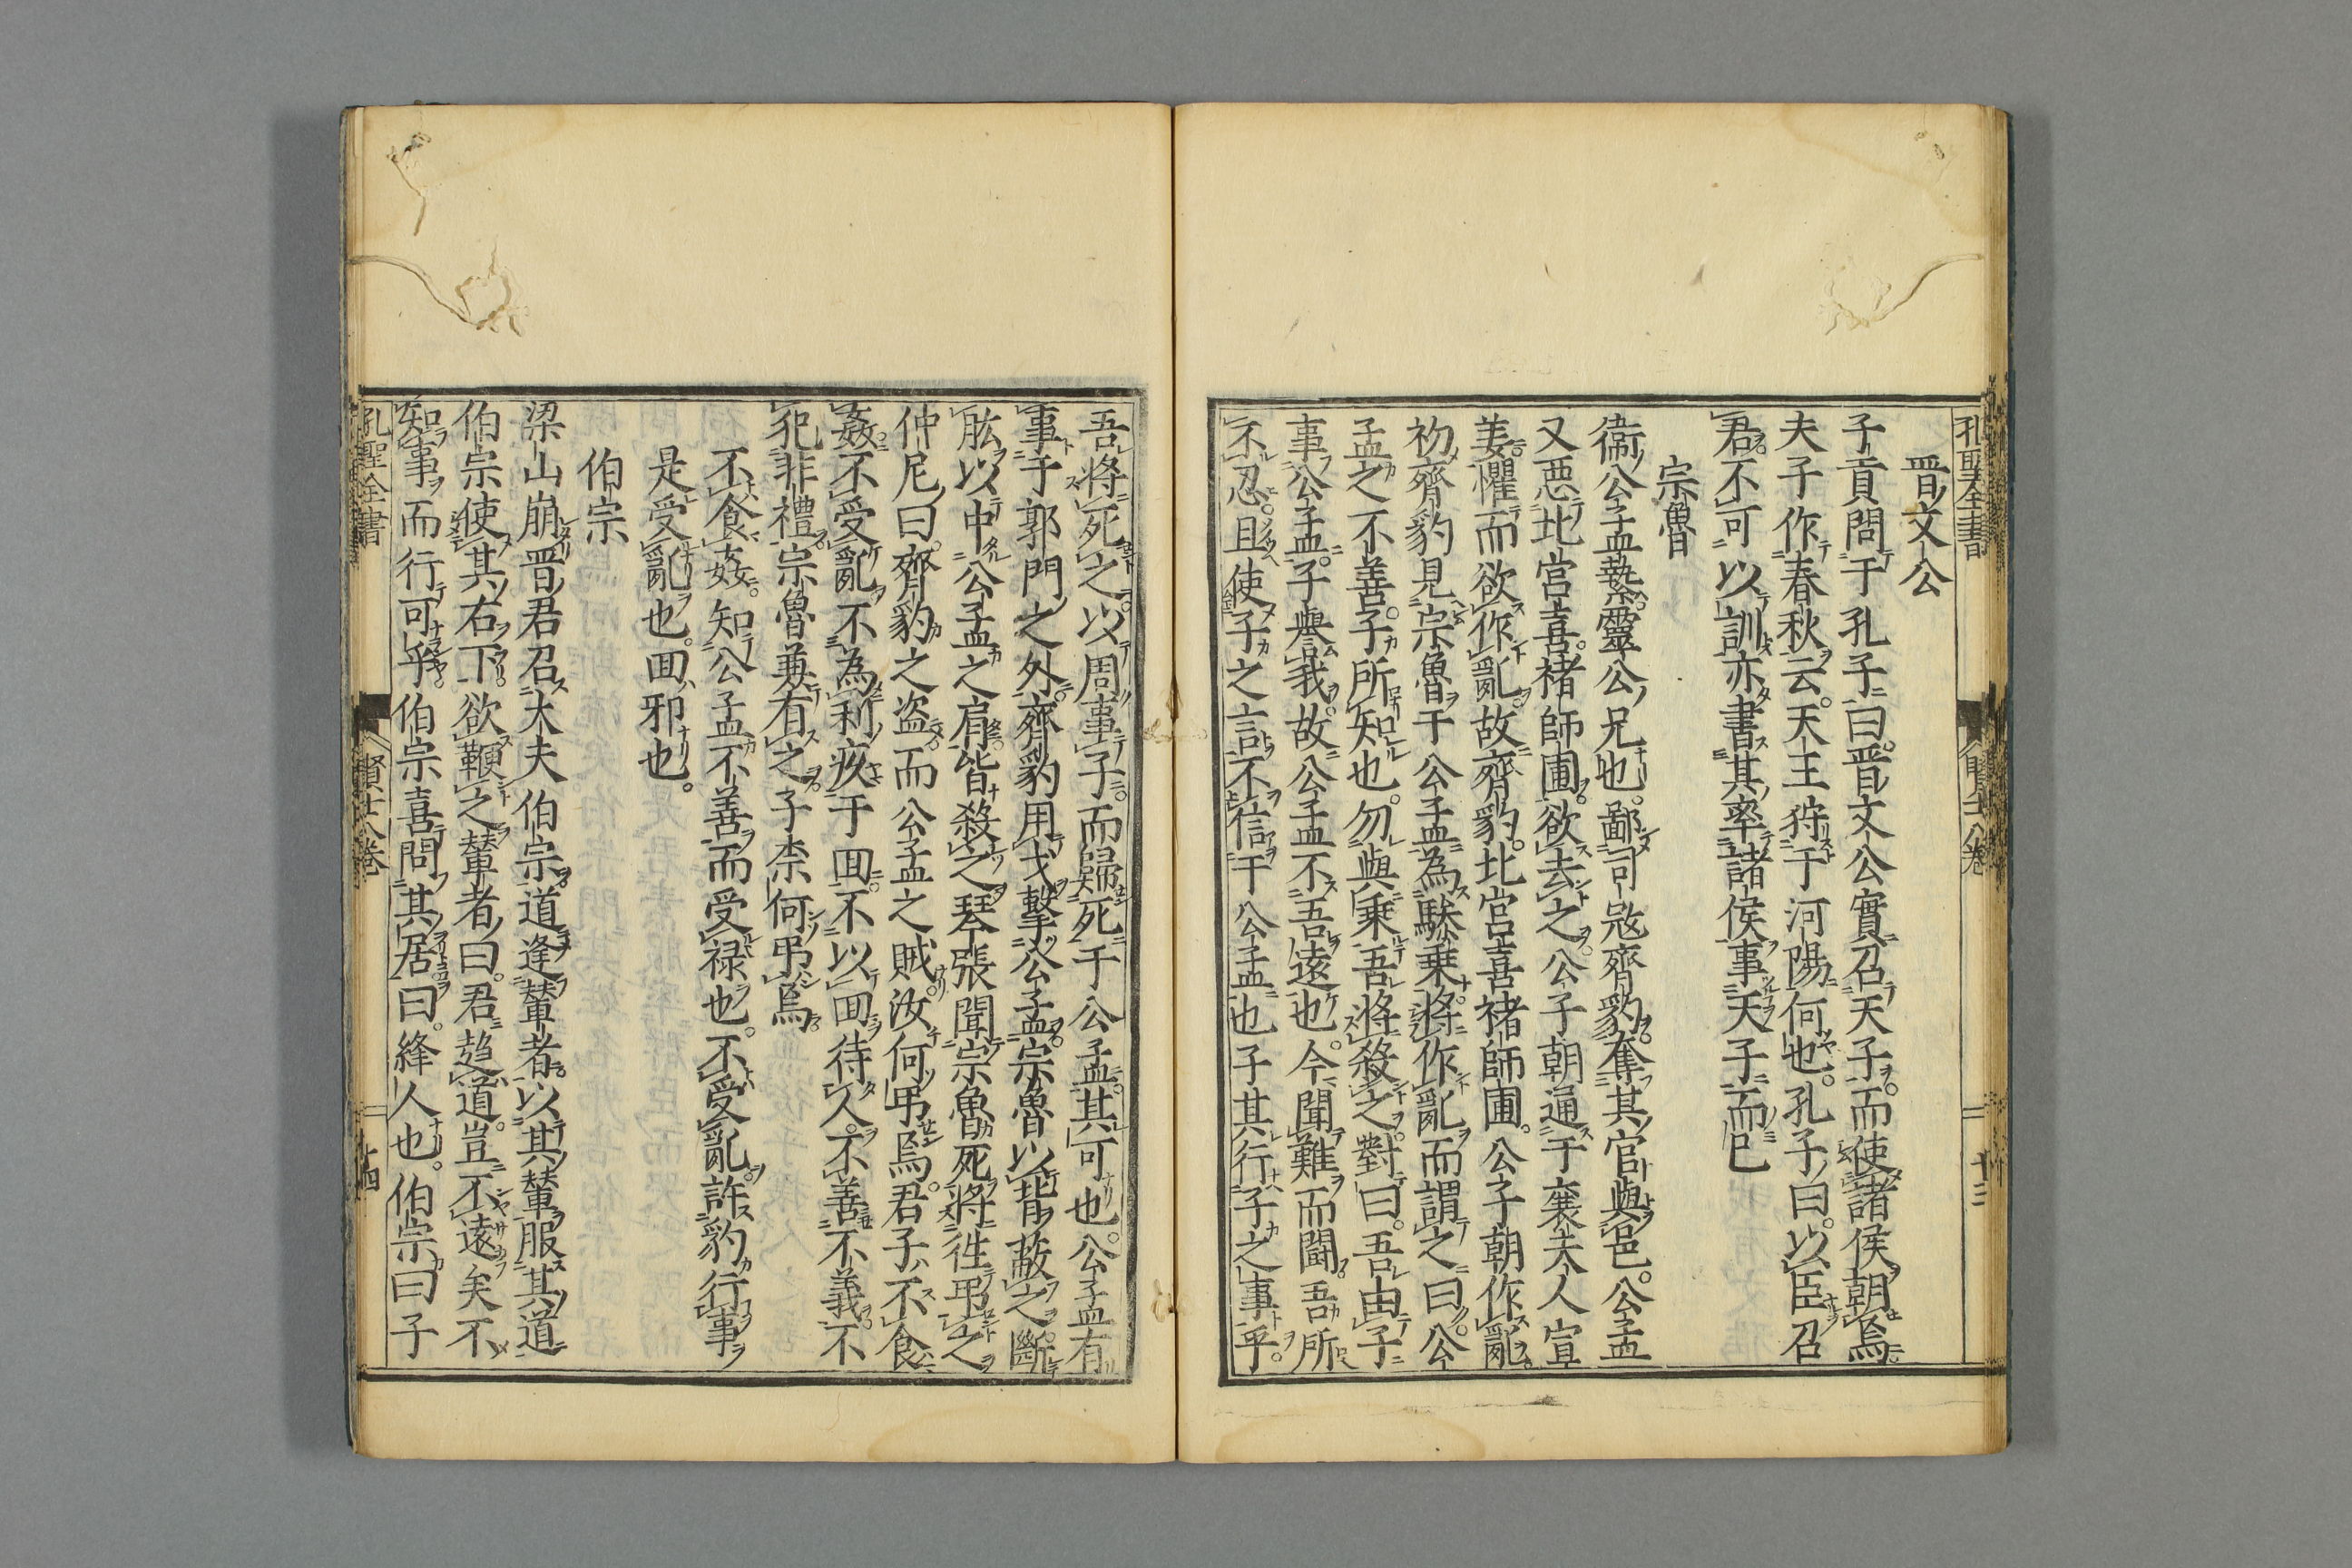 晋文公
子貢問于孔子曰晋文公實召天子而使諸侯朝焉
夫子作春秋云天王狩于河陽何也孔子曰以臣召
君不可以訓亦書其率諸侯事天子而已
宗魯
衞公孟縶靈公兄也鄙司寇齊豹奪其官與邑公孟
又惡北宮喜褚師圃欲去之公子朝通于襄夫人宣
姜懼而欲作亂故齊豹北宮喜褚師圃公子朝作亂
初齊豹見宗魯于公孟為驂乗將作亂而謂之曰公
孟之不善子所知也勿與乗吾將殺之對曰吾由子
事公孟子譽我故公孟不吾遠也今聞難而闘吾所
不忍且使子之言不信于公孟也子其行子之事乎
吾將死之以周事子而歸死于公孟其可也公孟有
事于郭門之外齊豹用戈擊公孟宗魯以背蔽之斷
肱以中公孟之肩皆殺之琴張聞宗魯死將往弔之
仲尼曰齊豹之盗而公孟之賊汝何弔焉君子不食
姦不受亂不為利疚于回不以回待人不善不義不
犯非禮宗魯兼有之子柰何弔焉
不食姦知公孟不善而受禄也不受亂許豹行事
是受亂也回邪也
伯宗
梁山崩晋君召大夫伯宗道逢輦者以其輦服其道
伯宗使其右下欲鞭之輦者曰君趋道豈不遠矣不
知事而行可乎伯宗喜問其居曰絳人也伯宗曰子
孔聖全書
賢士八巻
十三
孔聖全書
賢士八巻
十四